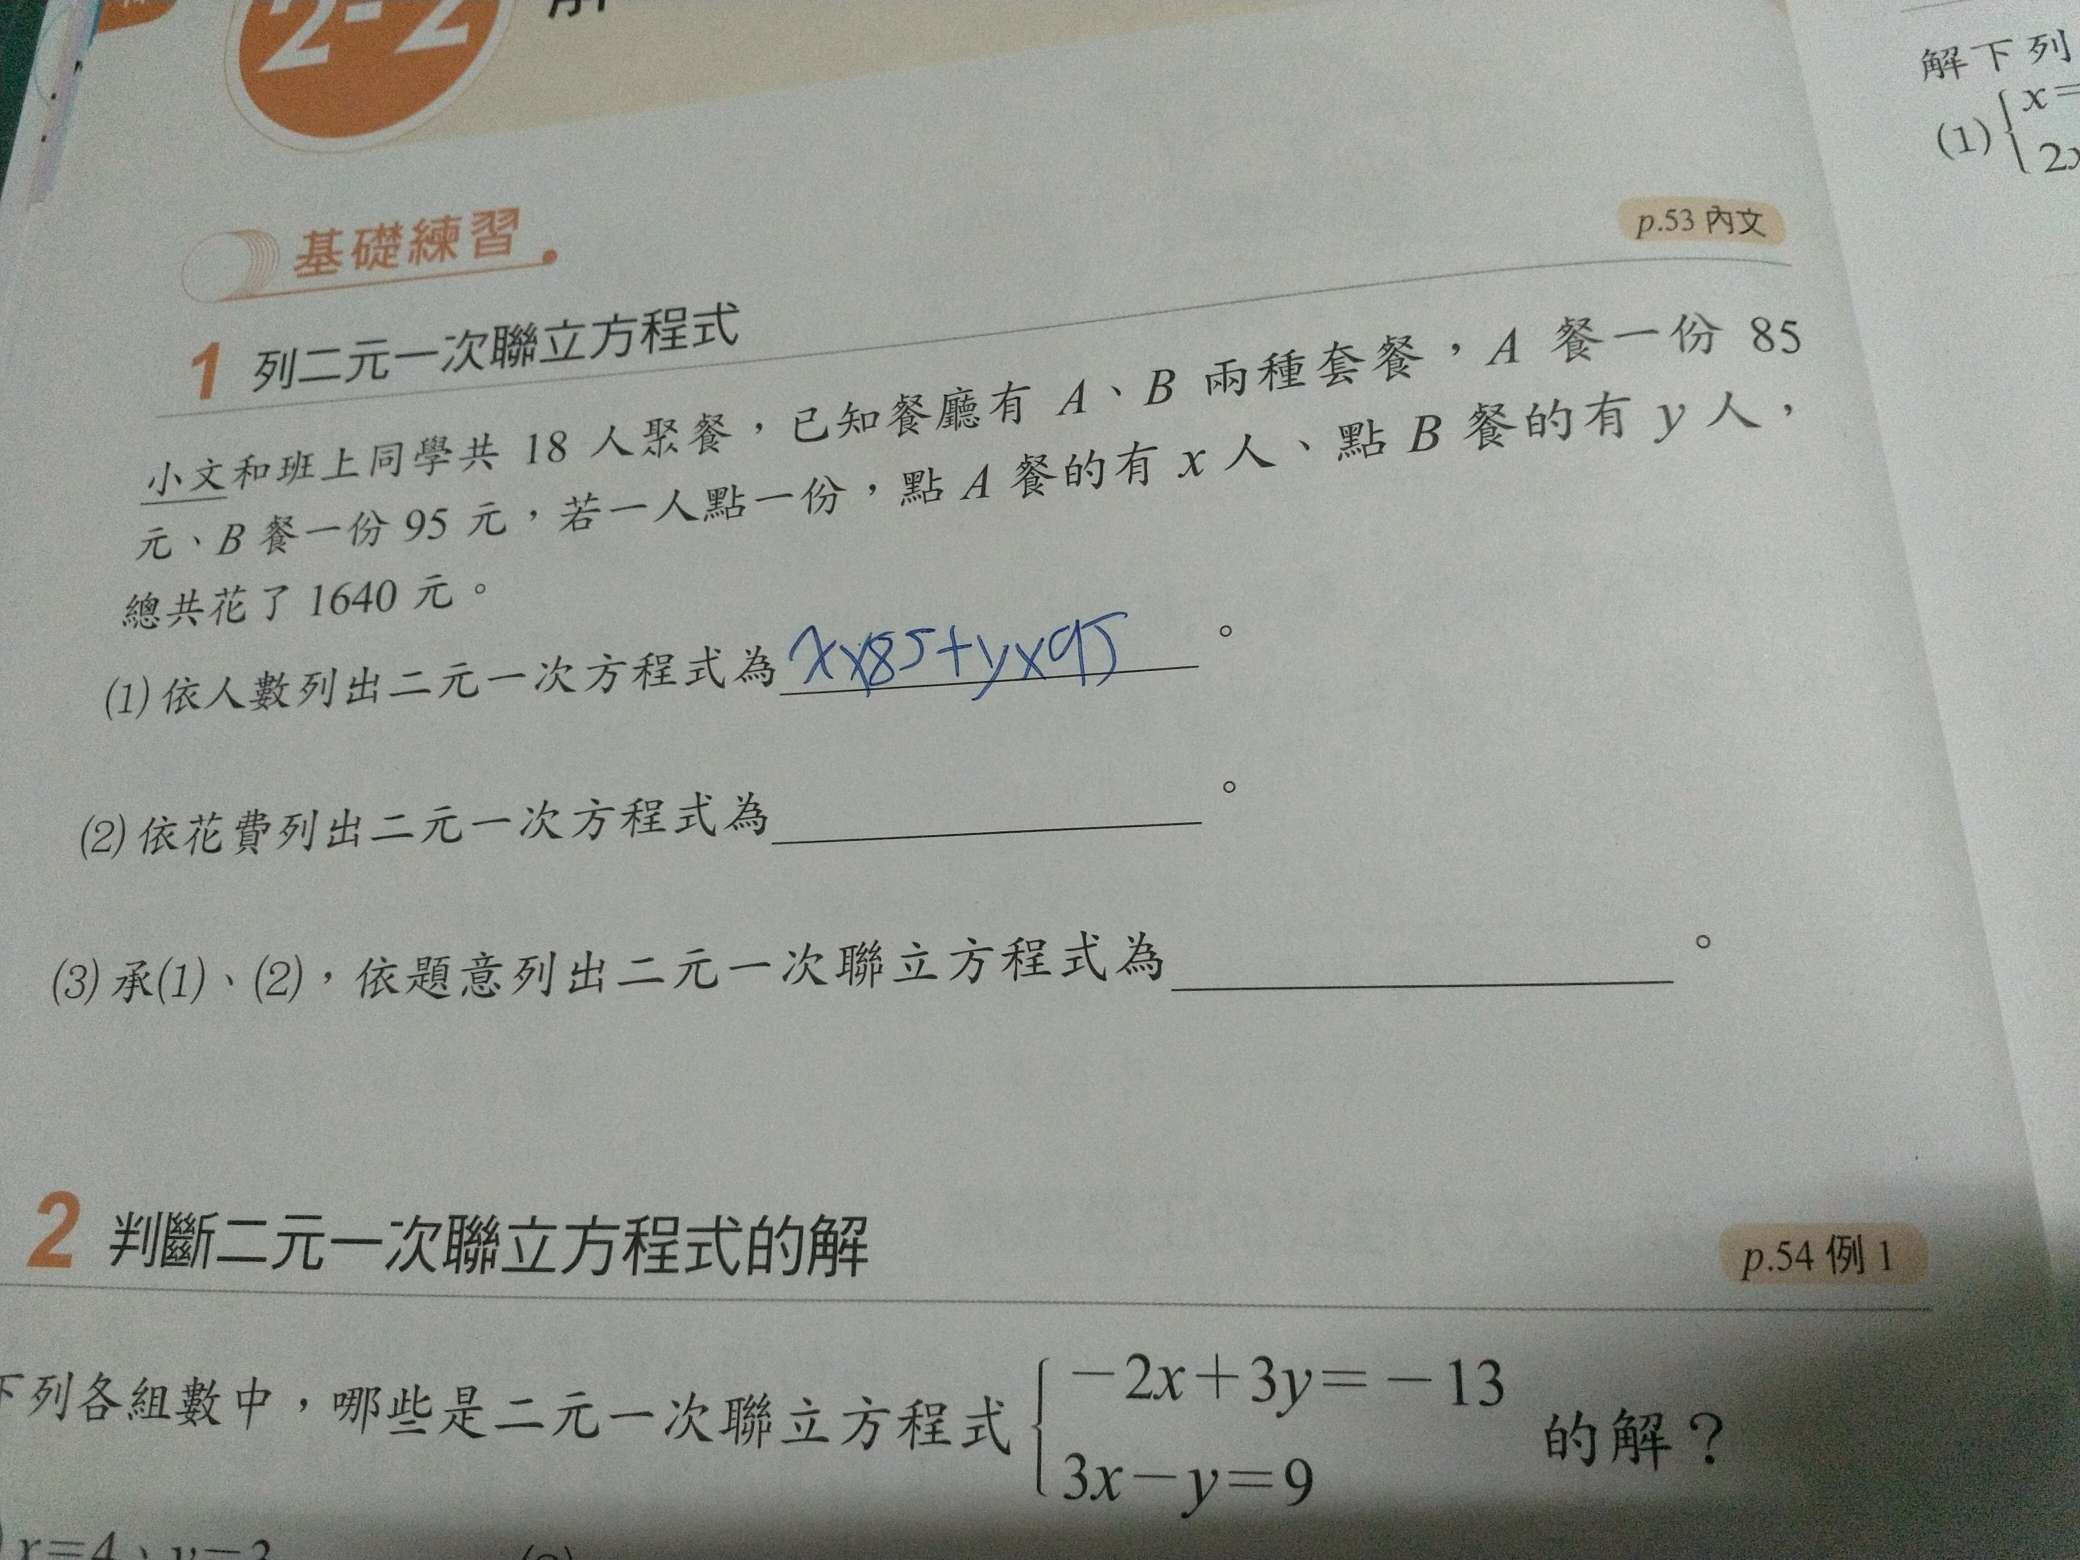 2-2
基礎練習
p.53 內文
1 列二元一次聯立方程式
小文和班上同學共 18 人聚餐，已知餐廳有 A、B 兩種套餐，A 餐一份 85
元、B 餐一份 95 元，若一人點一份，點 A 餐的有 x 人、點 B 餐的有 y 人，
總共花了 1640 元。
(1) 依人數列出二元一次方程式為 x×85+y×95 。
(2) 依花費列出二元一次方程式為 。
(3) 承(1)、(2)，依題意列出二元一次聯立方程式為 。
2 判斷二元一次聯立方程式的解
p.54 例 1
下列各組數中，哪些是二元一次聯立方程式 的解？
-2x+3y=-13
3x-y=9
解下列
(1) x=
2x